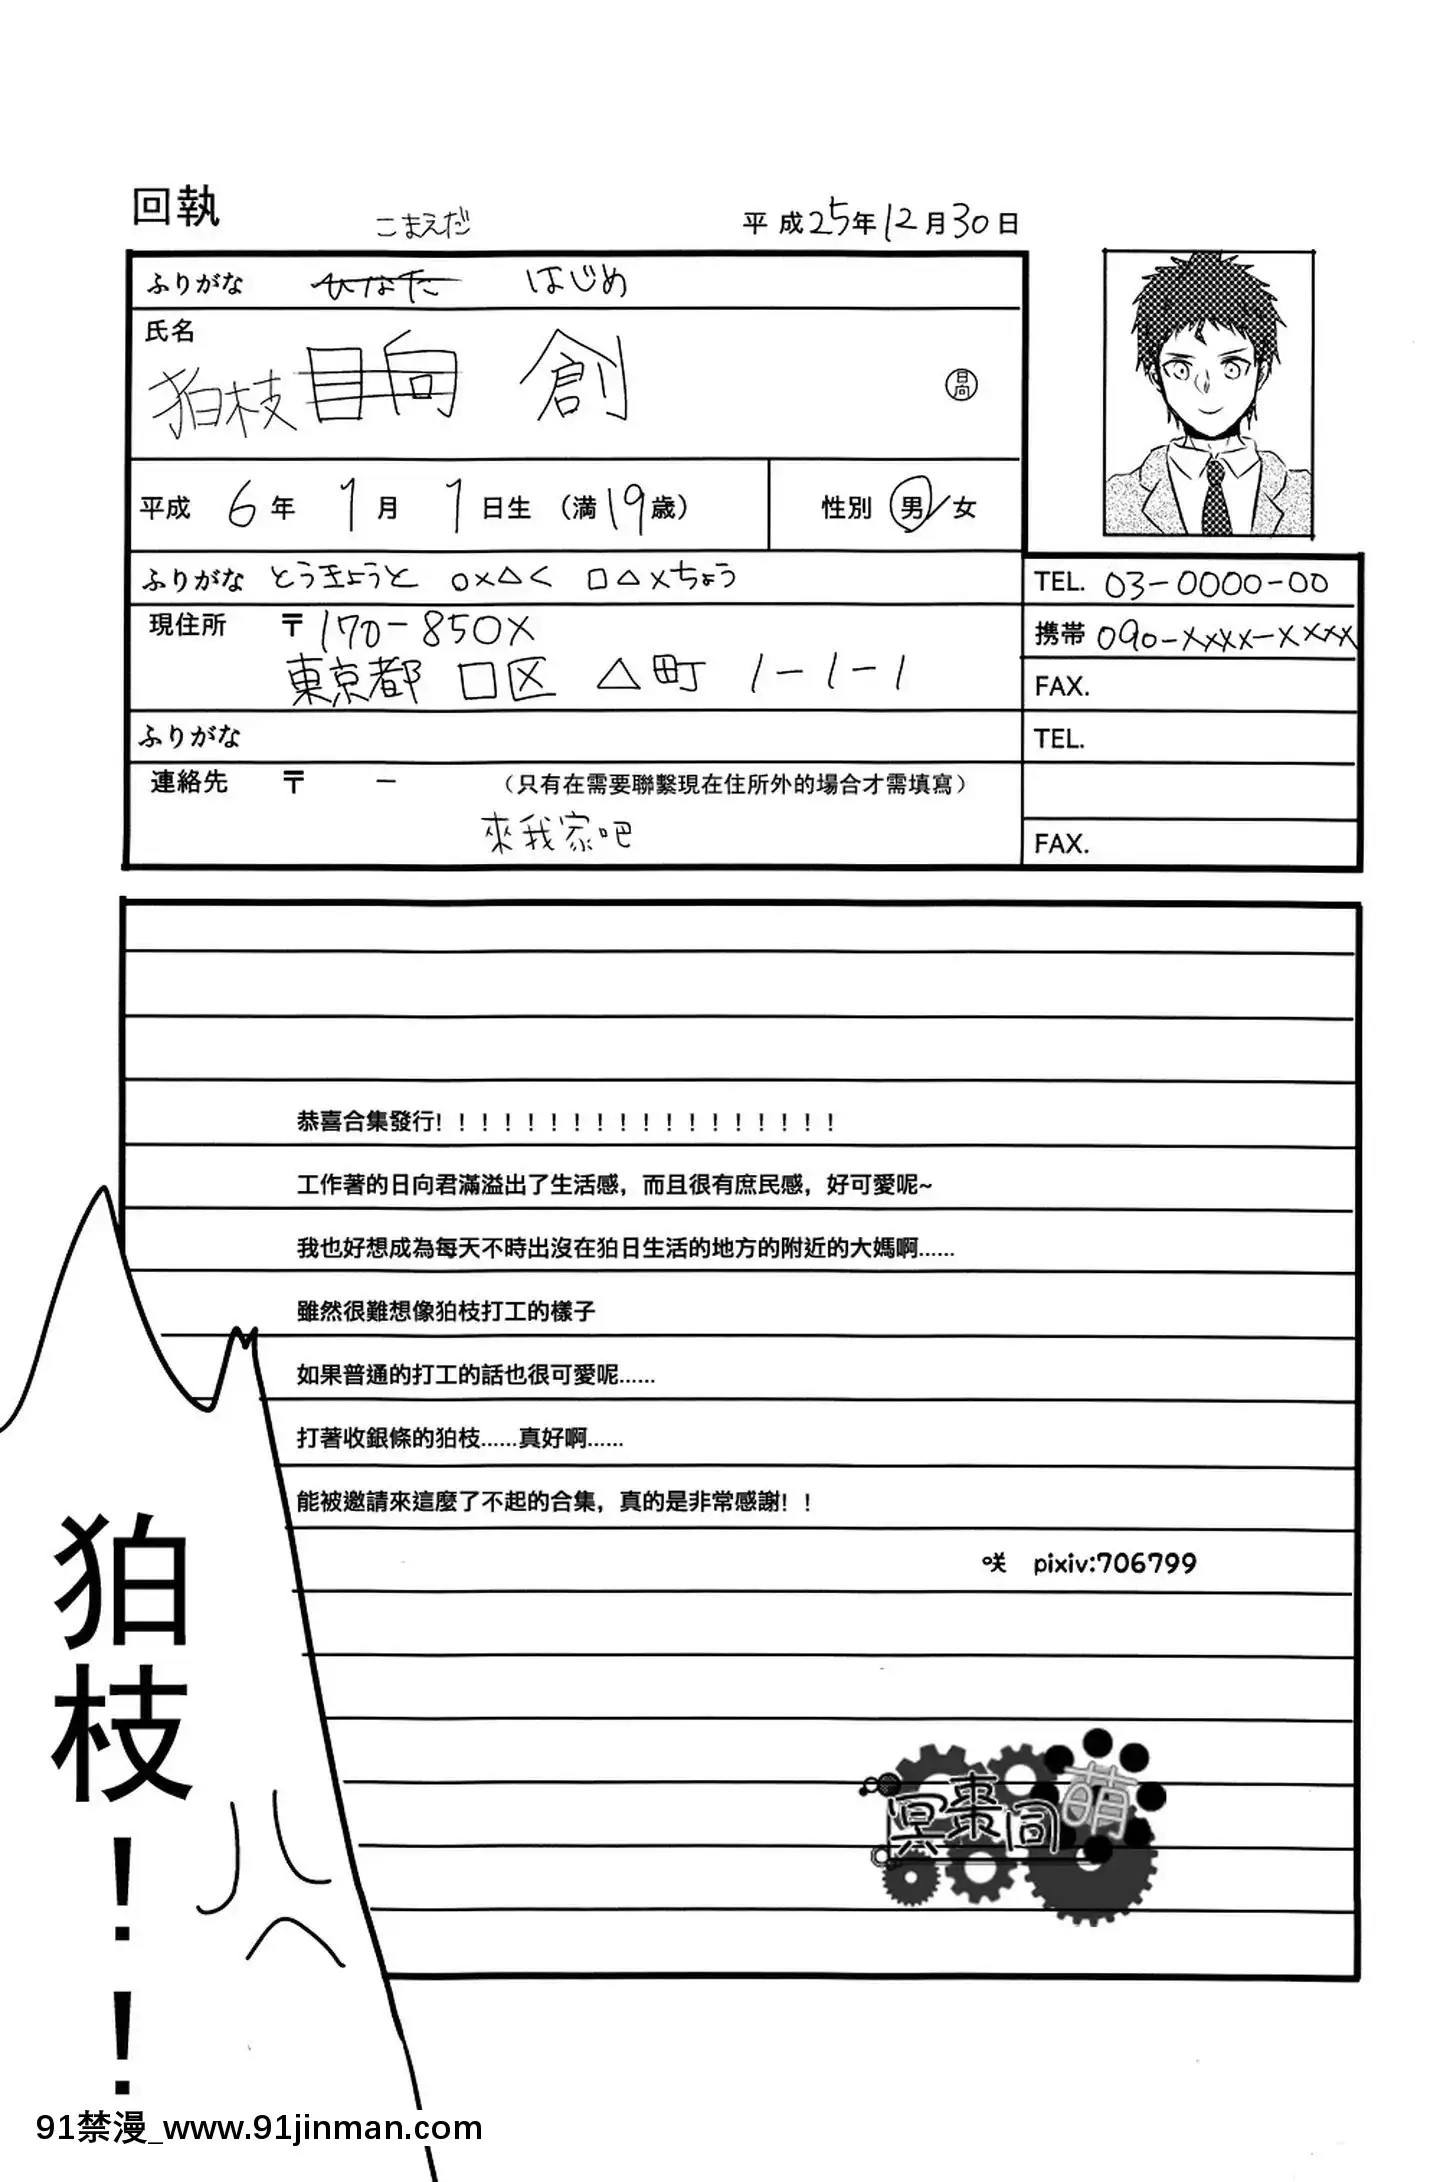 回執
こまえだ
平成25年12月30日
ふりがな ひなた はじめ
氏名
狛枝 日向 創
日向
平成 6年 1月 1日生 (満19歳)
性別 男/女
ふりがな とうきょうと ○×△く □△×ちょう
TEL. 03-0000-00
現住所 〒170-850X
携帯 090-xxxx-xxxx
東京都 口区 △町 1-1-1
FAX.
ふりがな
TEL.
連絡先 〒 - (只有在需要聯繫現在住所外的場合才需填寫)
來我家吧
FAX.
恭喜合集發行!!!!!!!!!!!!!!!!!!
工作著的日向君滿溢出了生活感,而且很有庶民感,好可愛呢~
我也好想成為每天不時出沒在狛日生活的地方的附近的大媽啊......
雖然很難想像狛枝打工的樣子
如果普通的打工的話也很可愛呢......
打著收銀條的狛枝......真好啊......
能被邀請來這麼了不起的合集,真的是非常感謝!!
咲 pixiv:706799
狛枝!!
冥棗同萌
91禁漫_www.91jinman.com